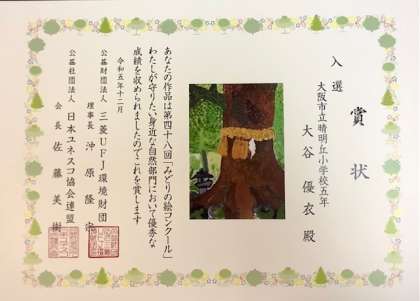 賞状
入選
大阪市立晴明丘小学校五年
大谷優衣殿
あなたの作品は第四十八回「みどりの絵コンクール」
わたしが守りたい身近な自然部門において優秀な
成績を収められましたのでこれを賞します
令和五年十二月
公益財団法人 三菱UFJ環境財団
理事長 沖原隆宗
公益社団法人 日本ユネスコ協会連盟
会長 佐藤美樹